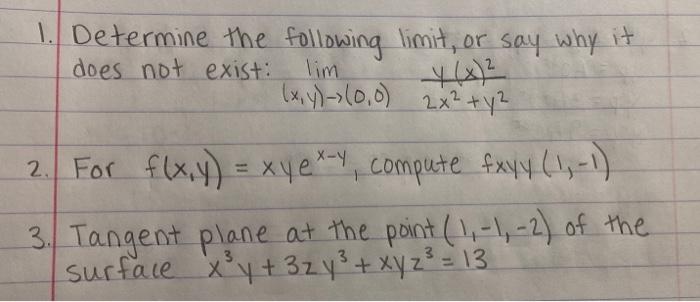 1. Determine the following limit, or say why it
does not exist: lim (x,y)->(0,0) y(x)²/2x²+y²
2. For f(x,y) = xye^x-y, compute fxyy (1,-1)
3. Tangent plane at the point (1,-1,-2) of the
surface x³y + 3zy³ + xyz³ = 13